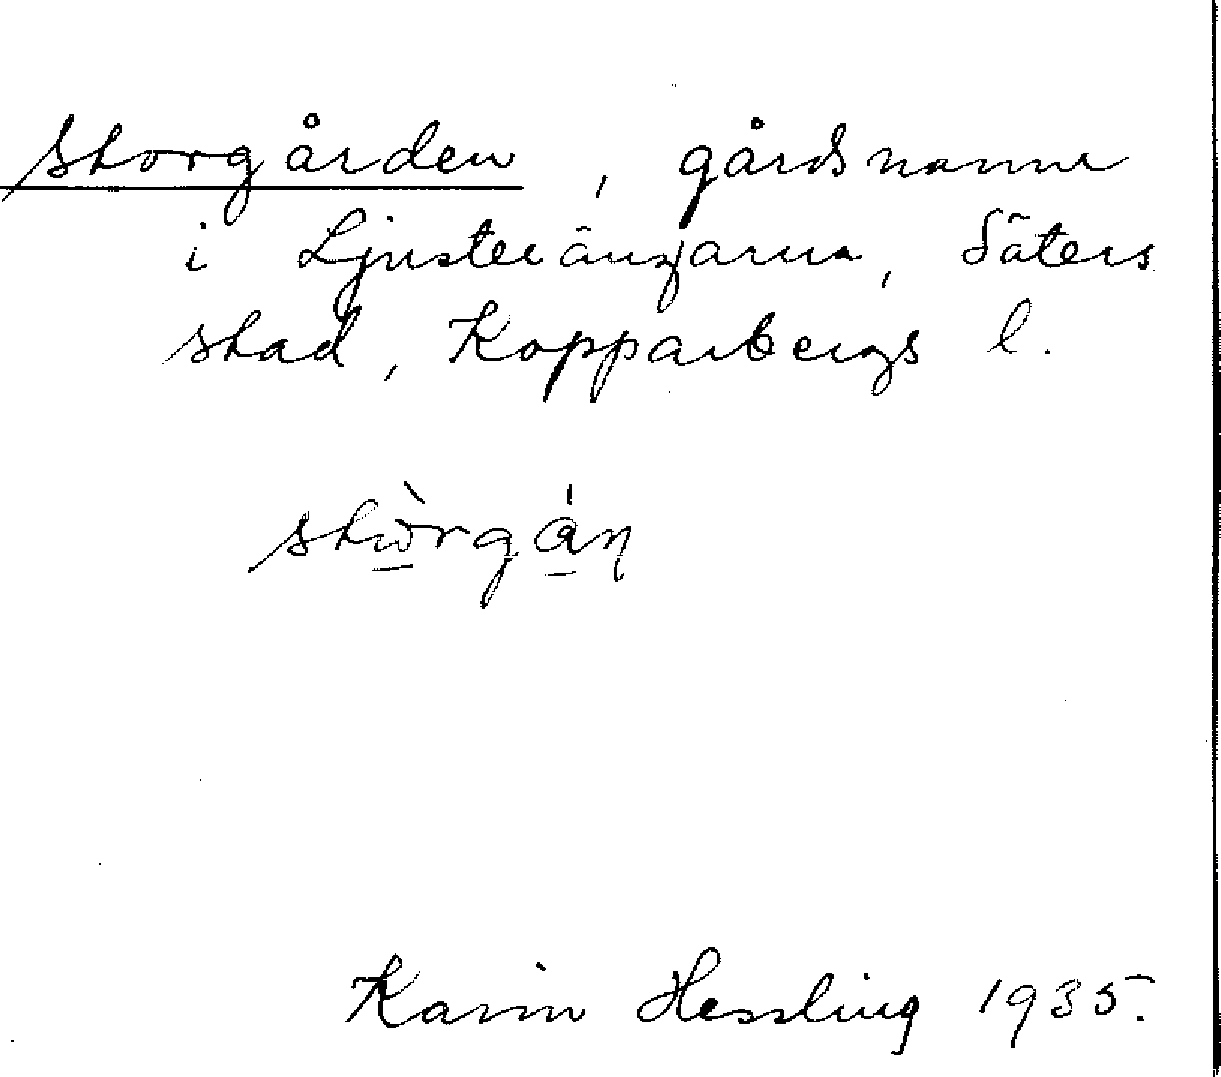 Storgården, gårdsnamn
i Ljusterängarna, Säters
stad, Kopparbergs l.
stὼrgάn̩
Karin Hessling 1935.